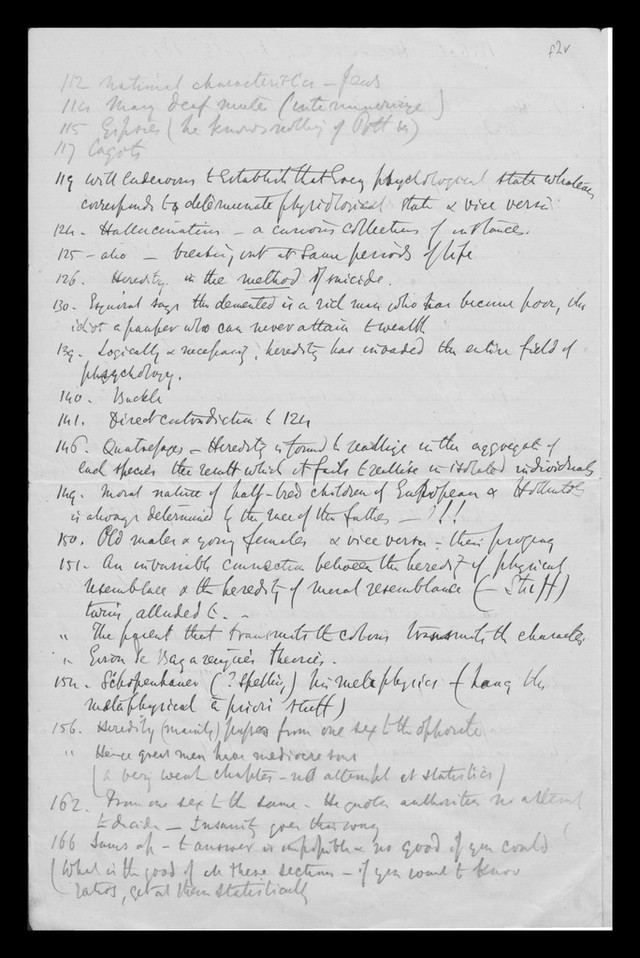 f2v
112 National characteristics - Jews
114 Many deaf mute (intermarriage)
115 Gipsies (he knows nothing of Pott
117 Cagots
119 will endeavour to establish that every psychological state whatever
corresponds to a determinate physiological state & vice versa
124. Hallucinations - a curious collection of instances.
125 - also - breaking out at same periods of life
126. Heredity in the method of suicide.
130. Esquirol says the demented is a rich man who has become poor, the
idiot a pauper who can never attain to wealth
139. Logically & necessarily, heredity has invaded the entire field of
psychology.
140. Buckle
141. Direct contradiction to 124
146. Quatrefages - Heredity is found to realise in the aggregate of
each species the result which it fails to realise in isolated individuals
149. Moral nature of half-bred children of European & Hottentots
is always determined by the race of the father - ?!!
150. Old males & young females & vice versa - their progeny
151. An invariable connection between the heredity of physical
resemblance & the heredity of moral resemblance (- Stuff)
twins alluded to.
" The parent that transmits the colour transmits the character
" Giron de Buzareingues theories.
154. Schopenhauer (? spelling) his metaphysics - (hang the
metaphysical à priori stuff)
156. Heredity (mainly) passes from one sex to the opposite
" Hence great men have mediocre sons
(a very weak chapter - no attempt at statistics)
162. From one sex to the same - He quotes authorities no attempt
to decide - Insanity goes this way
166 Sums up - to answer is impossible & no good if you could!
(What is the good of all these sections - if you want to know
ratios, get at them statistically